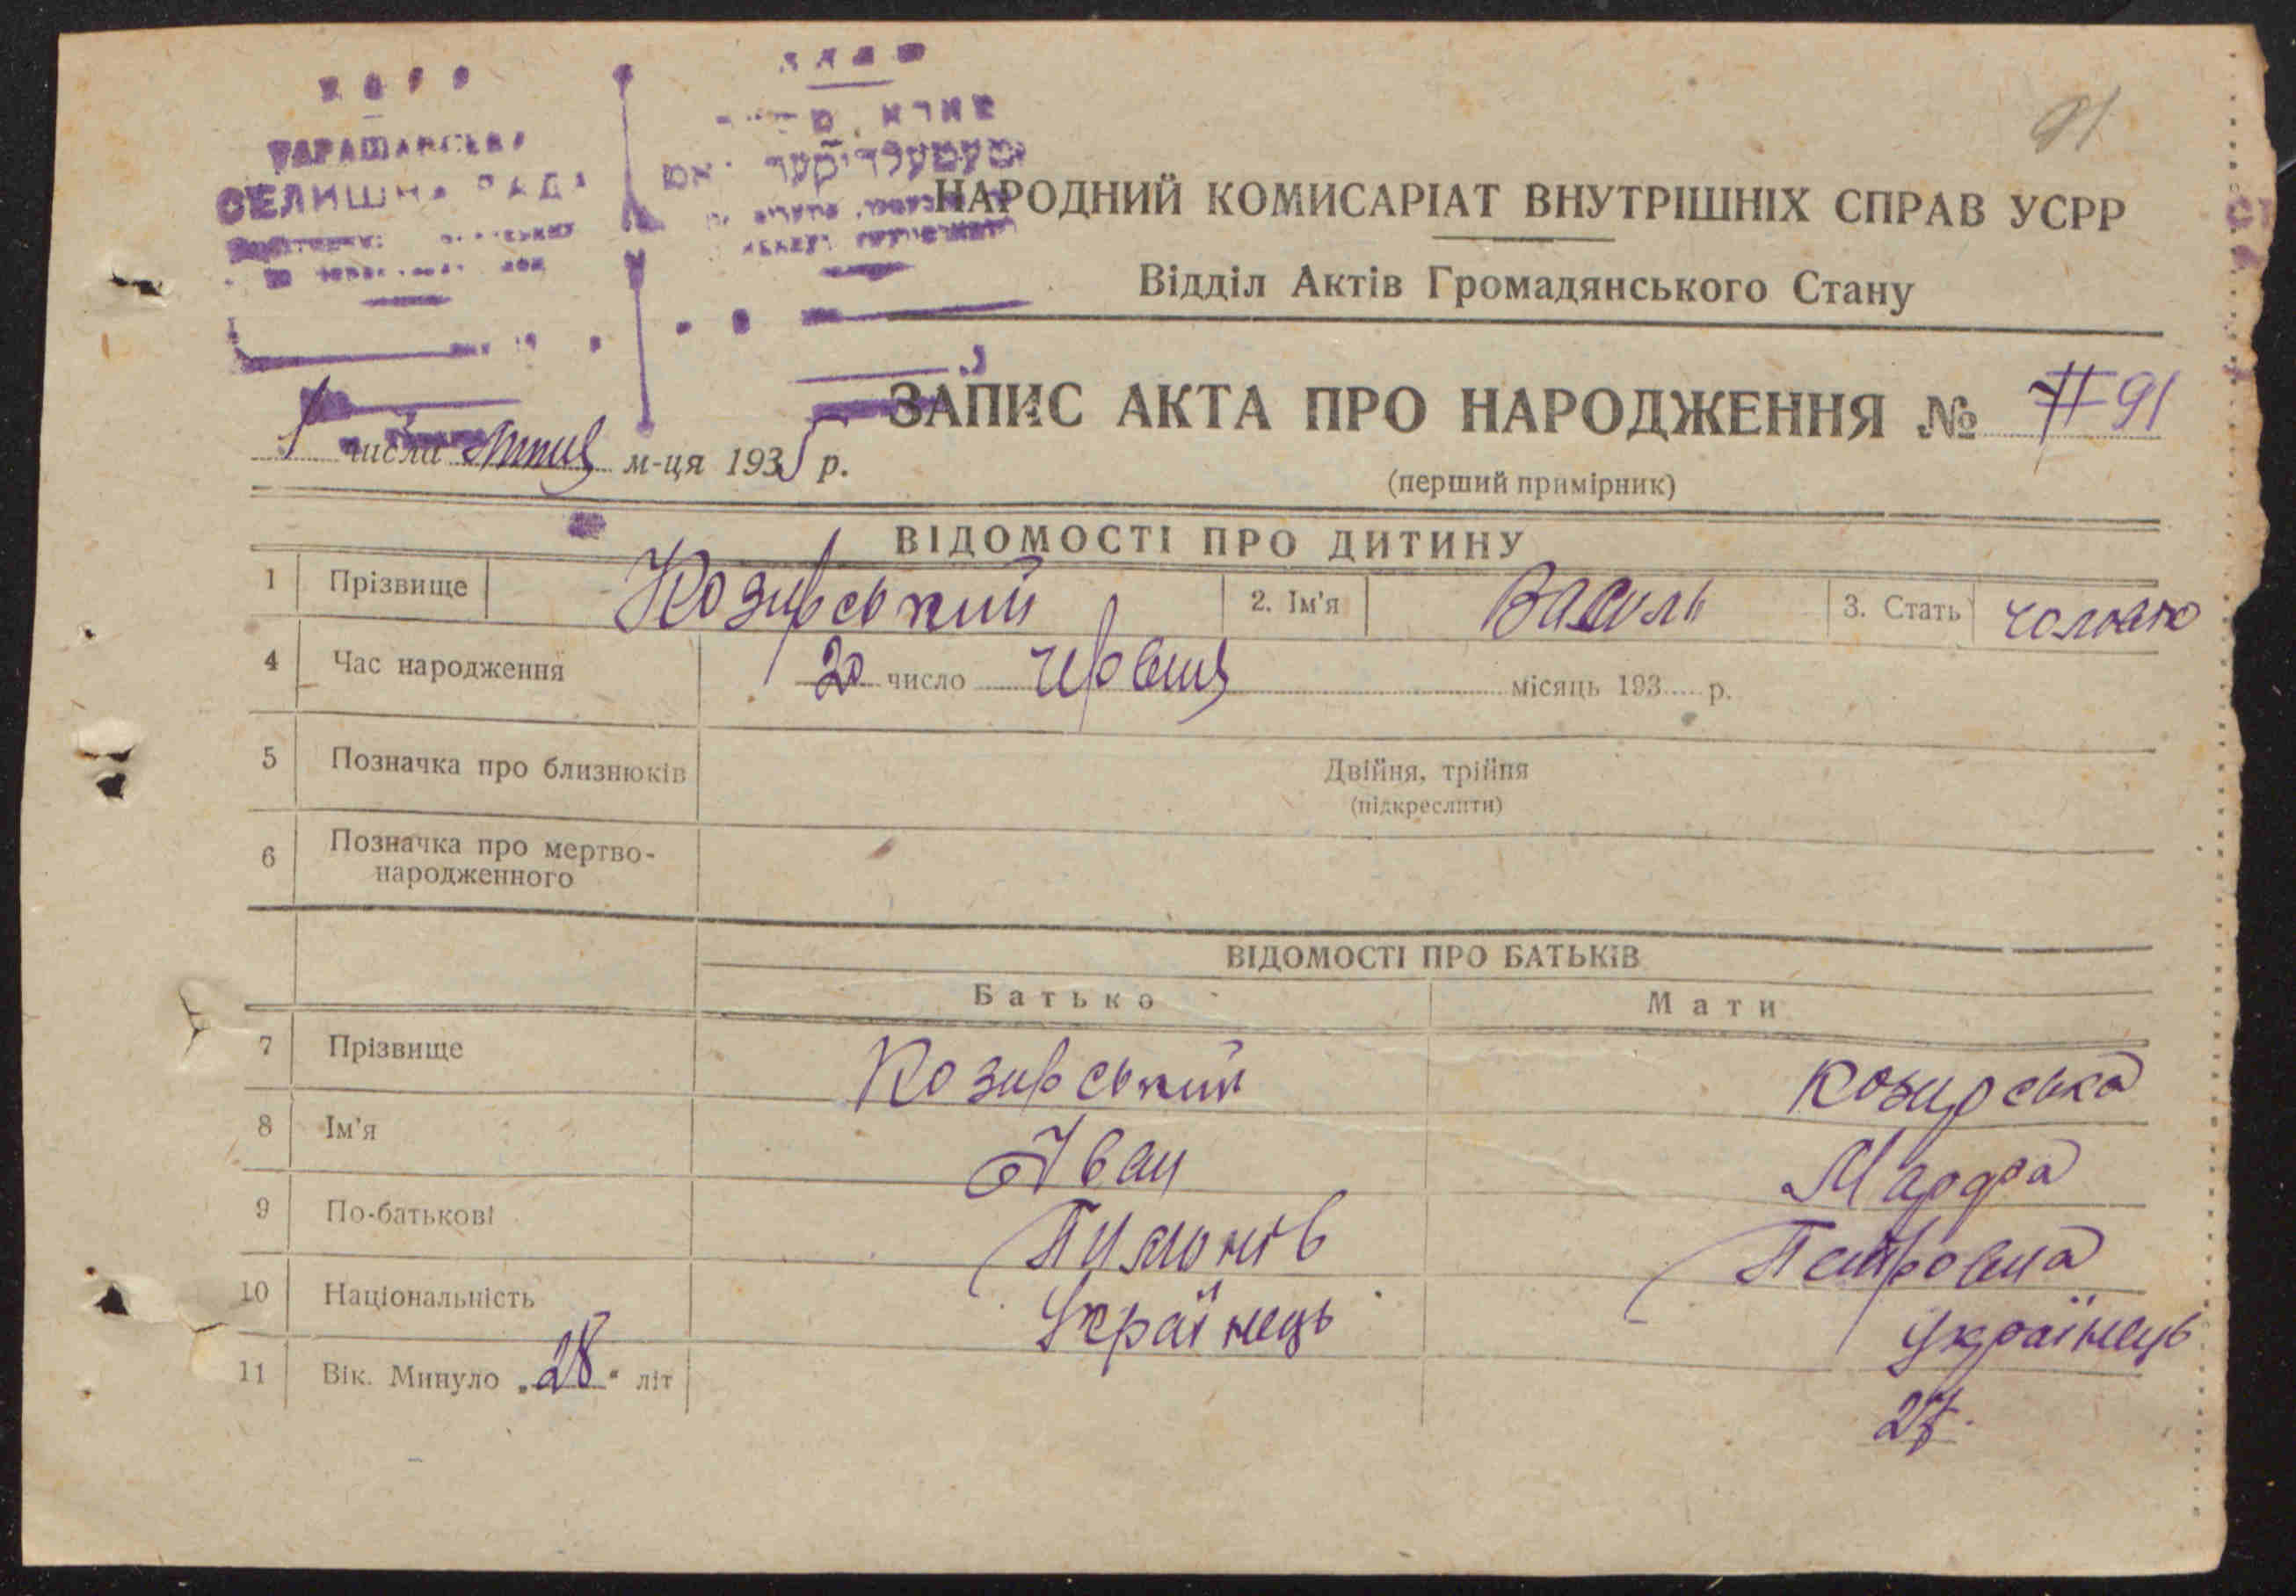 91
ТАРАЩАНСЬКА
СЕЛИШНА РАДА
НАРОДНИЙ КОМИСАРІАТ ВНУТРІШНІХ СПРАВ УСРР
Відділ Актів Громадянського Стану
ЗАПИС АКТА ПРО НАРОДЖЕННЯ № 91
1 числа липня м-ця 1935 р.
(перший примірник)
ВІДОМОСТІ ПРО ДИТИНУ
1 Прізвище Козирський 2. Ім'я Василь 3. Стать
4 Час народження 20 число червня місяць 193 р.
5 Позначка про близнюків Двійня, трійня
(підкреслити)
6 Позначка про мертво-
народженного
ВІДОМОСТІ ПРО БАТЬКІВ
Батько Мати
7 Прізвище Козирський Козирська
8 Ім'я Іван Марфа
9 По-батькові Пилипів Петровна
10 Національність Українець Українець
11 Вік. Минуло „28" літ 27.